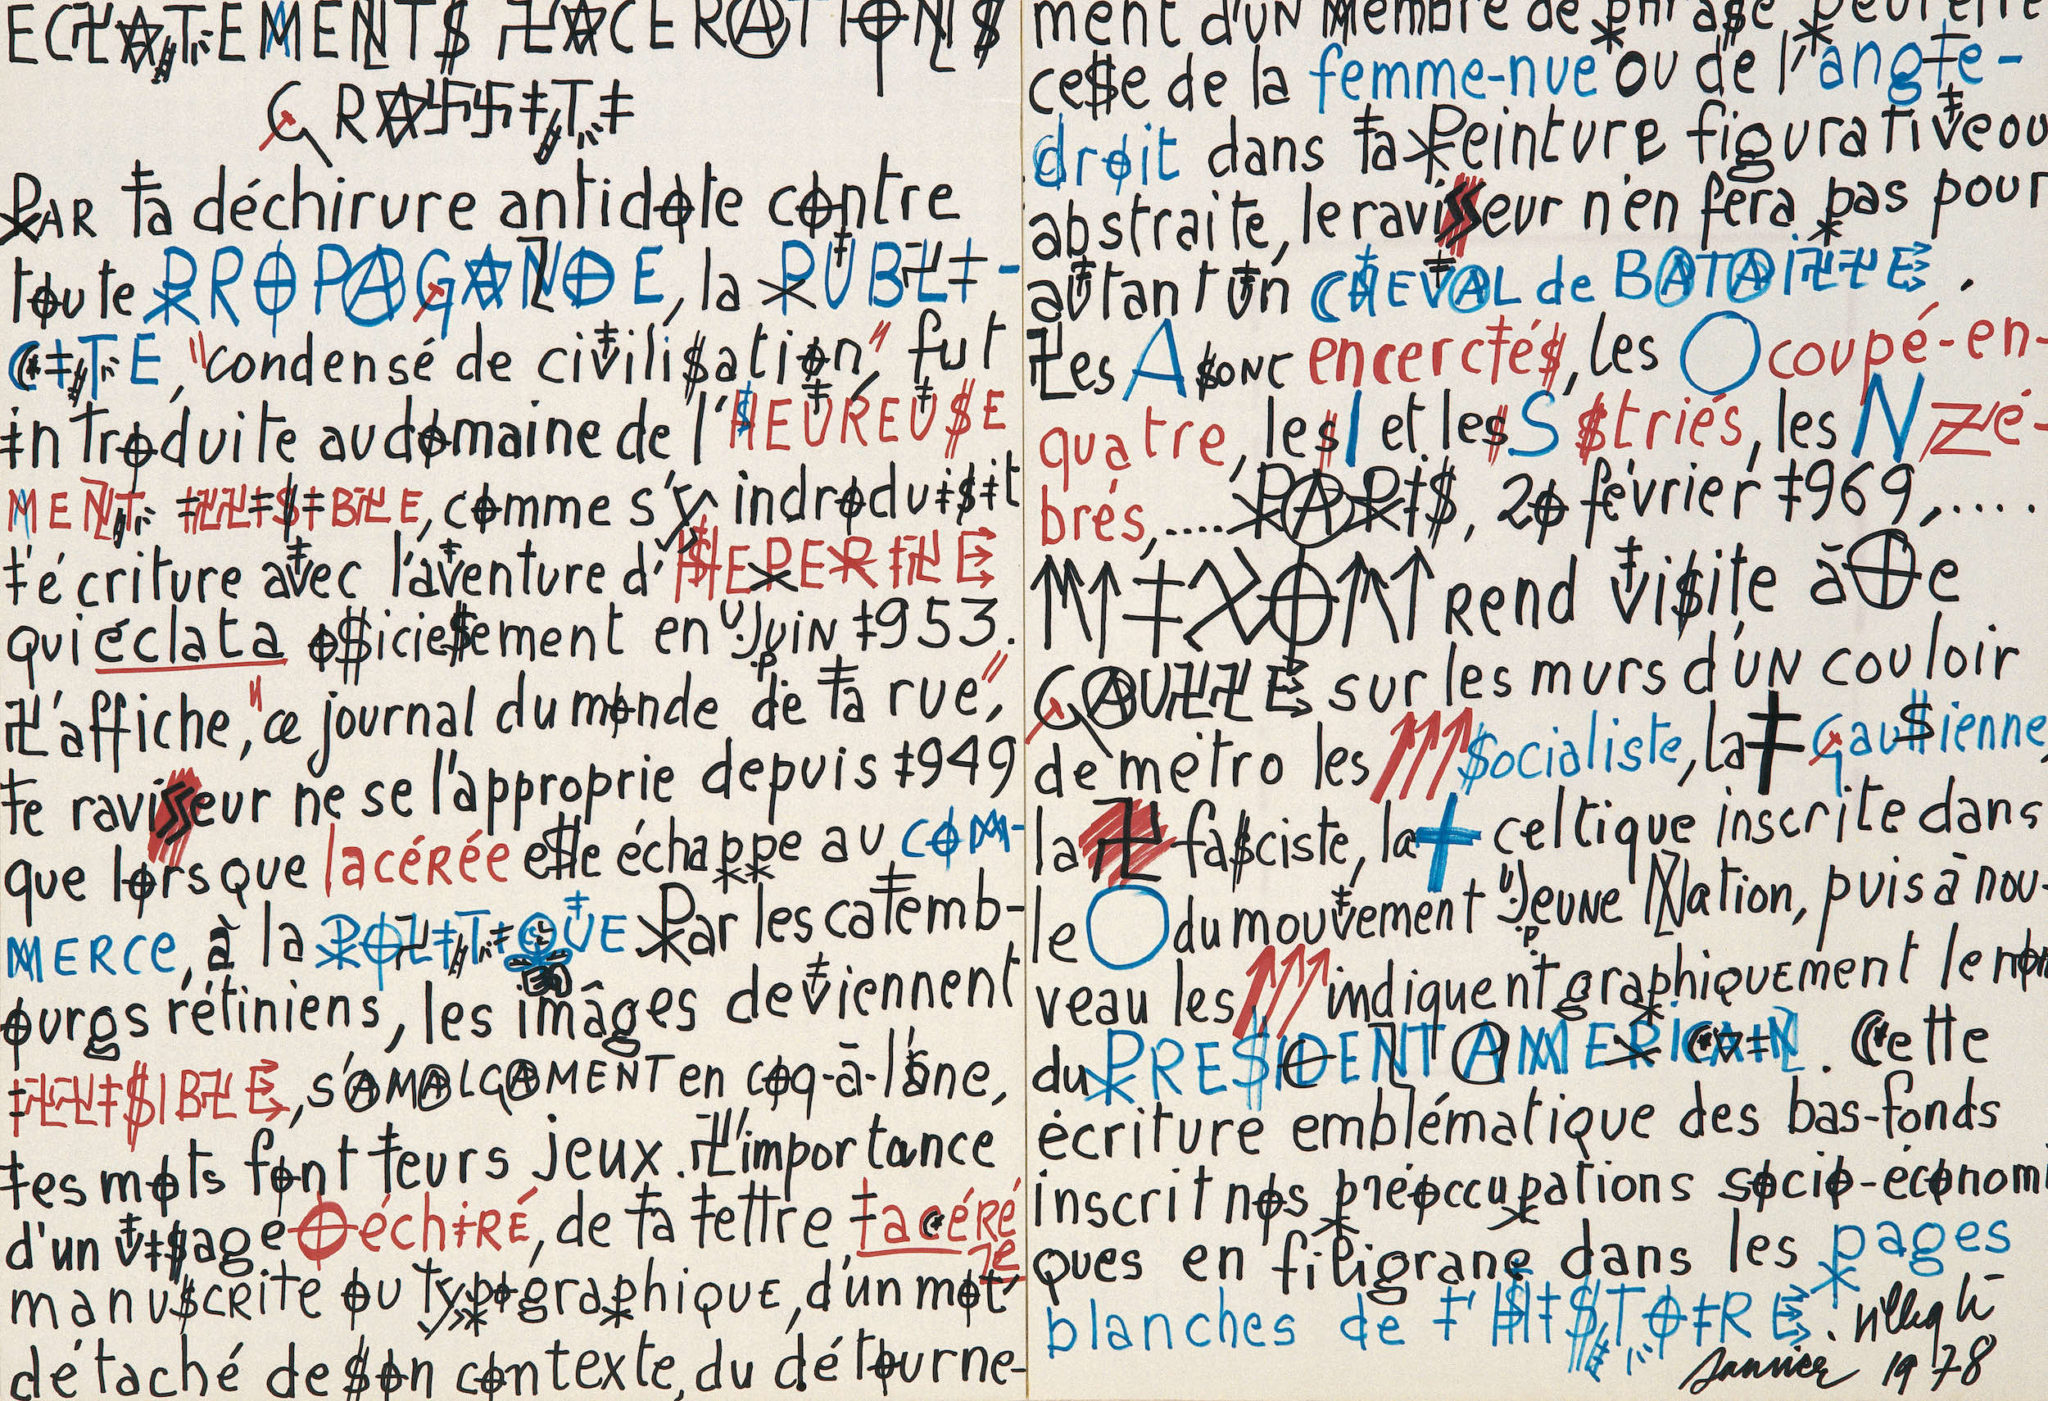 ECLATEMENTS LACERATIONS
GRAFFITI
PAR la déchirure antidote contre
toute PROPAGANDE, la PUBLI-
CITE, "condensé de civilisation," fut
introduite au domaine de l'HEUREUSE
MENT ILLISIBLE, comme s'y indroduisit
l'écriture avec l'aventure d'HEPERILE
qui éclata officiellement en Juin 1953.
L'affiche, "ce journal du monde de la rue,"
le ravisseur ne se l'approprie depuis 1949
que lorsque lacérée elle échappe au COM-
MERCE, à la POLITIQUE Par les calemb-
ourgs rétiniens, les imâges deviennent
ILLISIBLE, s'AMALGAMENT en coq-à-l'âne,
les mots font leurs jeux. L'importance
d'un visage déchiRÉ, de la lettre lacéré
manuscrite ou typographique, d'un mot
détaché de son contexte, du détourne-
ment d'un membre de phrase peut être
celle de la femme-nue ou de l'angle-
droit dans la Peinture figurative ou
abstraite, le ravisseur n'en fera pas pour
autant un CHEVAL de BATAILLE.
Les A sont encerclés, les O coupé-en-
quatre, les I et les S striés, les N zé-
brés,.....PARIS, 20 février 1969,.....
NIXON rend visite à De
GAULLE sur les murs d'un couloir
de métro les socialiste, la gaullienne,
la fasciste, la celtique inscrite dans
le O du mouvement Jeune Nation, puis à nou-
veau les indiquent graphiquement le nom
du PRESIDENT AMERICAIN. Cette
écriture emblématique des bas-fonds
inscrit nos préoccupations socio-économi
ques en filigrane dans les pages
blanches de l'HISTOIRE. Villeglé
Janvier 1978